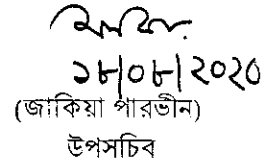 ১৮/০৮/২০২০
(জাকিয়া পারভীন)
উপসচিব